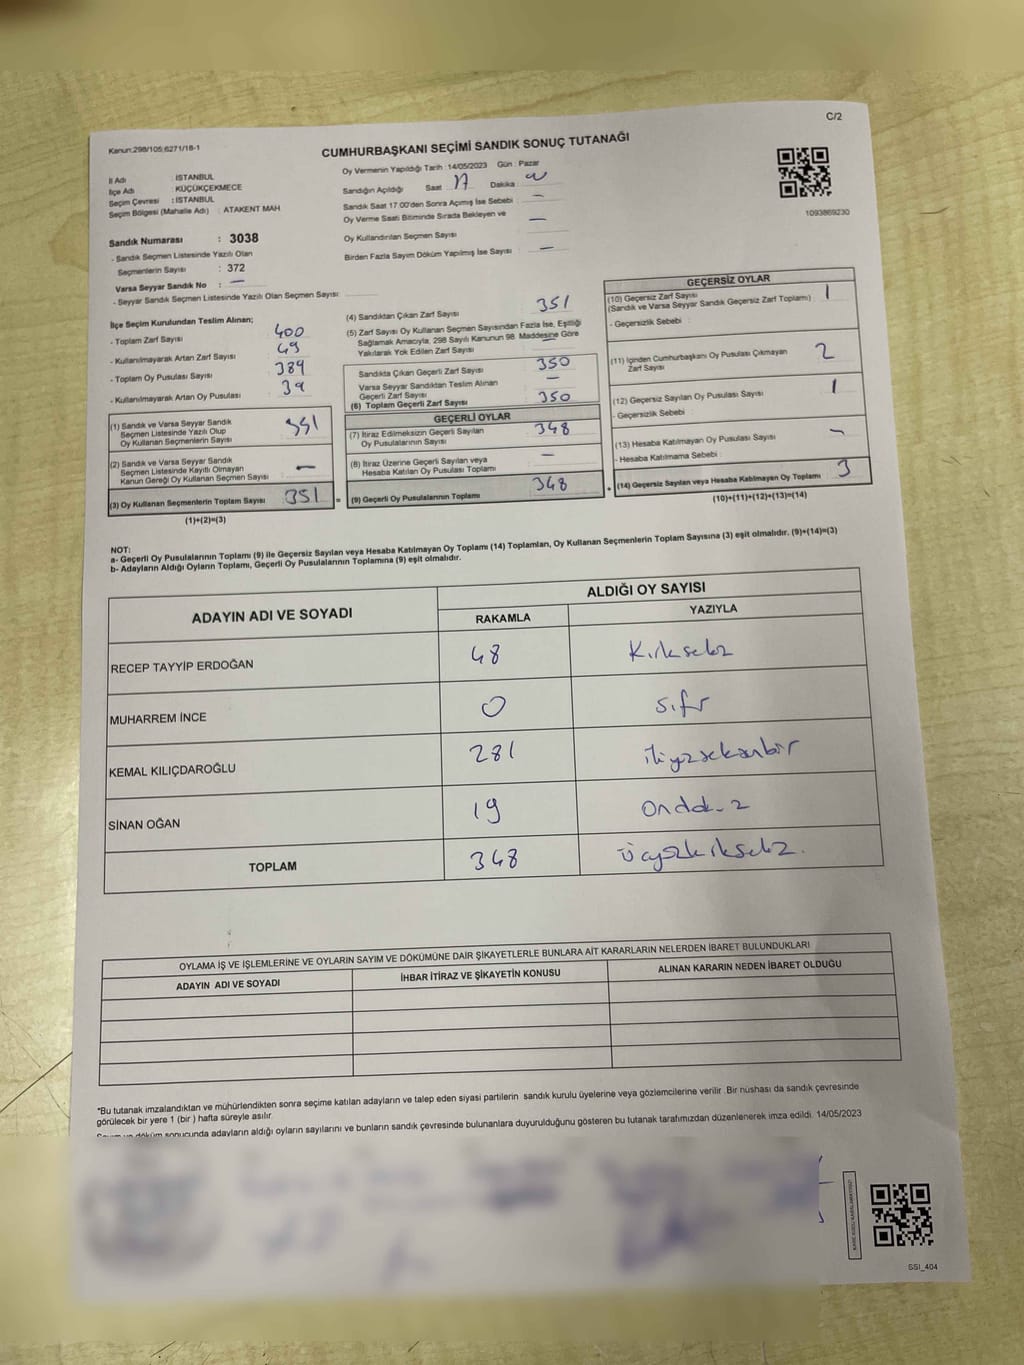 C/2
Kanun:298/105;6271/18-1
CUMHURBAŞKANI SEÇİMİ SANDIK SONUÇ TUTANAĞI
İl Adı : İSTANBUL
İlçe Adı : KÜÇÜKÇEKMECE
Seçim Çevresi : İSTANBUL
Seçim Bölgesi (Mahalle Adı) : ATAKENT MAH
Sandık Numarası : 3038
- Sandık Seçmen Listesinde Yazılı Olan
Seçmenlerin Sayısı : 372
Varsa Seyyar Sandık No : —
- Seyyar Sandık Seçmen Listesinde Yazılı Olan Seçmen Sayısı
Oy Vermenin Yapıldığı Tarih : 14/05/2023 Gün : Pazar
Sandığın Açıldığı Saat 17 Dakika
Sandık Saat 17.00'den Sonra Açılmış İse Sebebi —
Oy Verme Saati Bitiminde Sırada Bekleyen ve
Oy Kullandırılan Seçmen Sayısı —
Birden Fazla Sayım Döküm Yapılmış İse Sayısı —
1093869230
İlçe Seçim Kurulundan Teslim Alınan;
- Toplam Zarf Sayısı 400
- Kullanılmayarak Artan Zarf Sayısı 49
- Toplam Oy Pusulası Sayısı 389
- Kullanılmayarak Artan Oy Pusulası
(1) Sandık ve Varsa Seyyar Sandık
Seçmen Listesinde Yazılı Olup
Oy Kullanan Seçmenlerin Sayısı 351
(2) Sandık ve Varsa Seyyar Sandık
Seçmen Listesinde Kayıtlı Olmayan
Kanun Gereği Oy Kullanan Seçmen Sayısı —
(3) Oy Kullanan Seçmenlerin Toplam Sayısı 351 =
(1)+(2)=(3)
(4) Sandıktan Çıkan Zarf Sayısı 351
(5) Zarf Sayısı Oy Kullanan Seçmen Sayısından Fazla İse, Eşitliği
Sağlamak Amacıyla, 298 Sayılı Kanunun 98. Maddesine Göre
Yakılarak Yok Edilen Zarf Sayısı —
Sandıkta Çıkan Geçerli Zarf Sayısı 350
Varsa Seyyar Sandıktan Teslim Alınan
Geçerli Zarf Sayısı —
(6) Toplam Geçerli Zarf Sayısı 350
GEÇERLİ OYLAR
(7) İtiraz Edilmeksizin Geçerli Sayılan
Oy Pusulalarının Sayısı 348
(8) İtiraz Üzerine Geçerli Sayılan veya
Hesaba Katılan Oy Pusulası Toplamı —
(9) Geçerli Oy Pusulalarının Toplamı 348 +
GEÇERSİZ OYLAR
(10) Geçersiz Zarf Sayısı
(Sandık ve Varsa Seyyar Sandık Geçersiz Zarf Toplamı) 1
- Geçersizlik Sebebi :
(11) İçinden Cumhurbaşkanı Oy Pusulası Çıkmayan
Zarf Sayısı 2
(12) Geçersiz Sayılan Oy Pusulası Sayısı 1
- Geçersizlik Sebebi :
(13) Hesaba Katılmayan Oy Pusulası Sayısı —
- Hesaba Katılmama Sebebi :
(14) Geçersiz Sayılan veya Hesaba Katılmayan Oy Toplamı 3
(10)+(11)+(12)+(13)=(14)
NOT:
a- Geçerli Oy Pusulalarının Toplamı (9) ile Geçersiz Sayılan veya Hesaba Katılmayan Oy Toplamı (14) Toplamları, Oy Kullanan Seçmenlerin Toplam Sayısına (3) eşit olmalıdır. (9)+(14)=(3)
b- Adayların Aldığı Oyların Toplamı, Geçerli Oy Pusulalarının Toplamına (9) eşit olmalıdır.
ADAYIN ADI VE SOYADI
ALDIĞI OY SAYISI
RAKAMLA YAZIYLA
RECEP TAYYİP ERDOĞAN 48 Kırksekiz
MUHARREM İNCE 0 sıfır
KEMAL KILIÇDAROĞLU 281 ikiyüzseksenbir
SİNAN OĞAN 19 Ondokuz
TOPLAM 348 üçyüzkırksekiz.
OYLAMA İŞ VE İŞLEMLERİNE VE OYLARIN SAYIM VE DÖKÜMÜNE DAİR ŞİKAYETLERLE BUNLARA AİT KARARLARIN NELERDEN İBARET BULUNDUKLARI
ADAYIN ADI VE SOYADI İHBAR İTİRAZ VE ŞİKAYETİN KONUSU ALINAN KARARIN NEDEN İBARET OLDUĞU
*Bu tutanak imzalandıktan ve mühürlendikten sonra seçime katılan adayların ve talep eden siyasi partilerin sandık kurulu üyelerine veya gözlemcilerine verilir. Bir nüshası da sandık çevresinde
görülecek bir yere 1 (bir) hafta süreyle asılır.
Sayım ve döküm sonucunda adayların aldığı oyların sayılarını ve bunların sandık çevresinde bulunanlara duyurulduğunu gösteren bu tutanak tarafımızdan düzenlenerek imza edildi. 14/05/2023
SSI_404